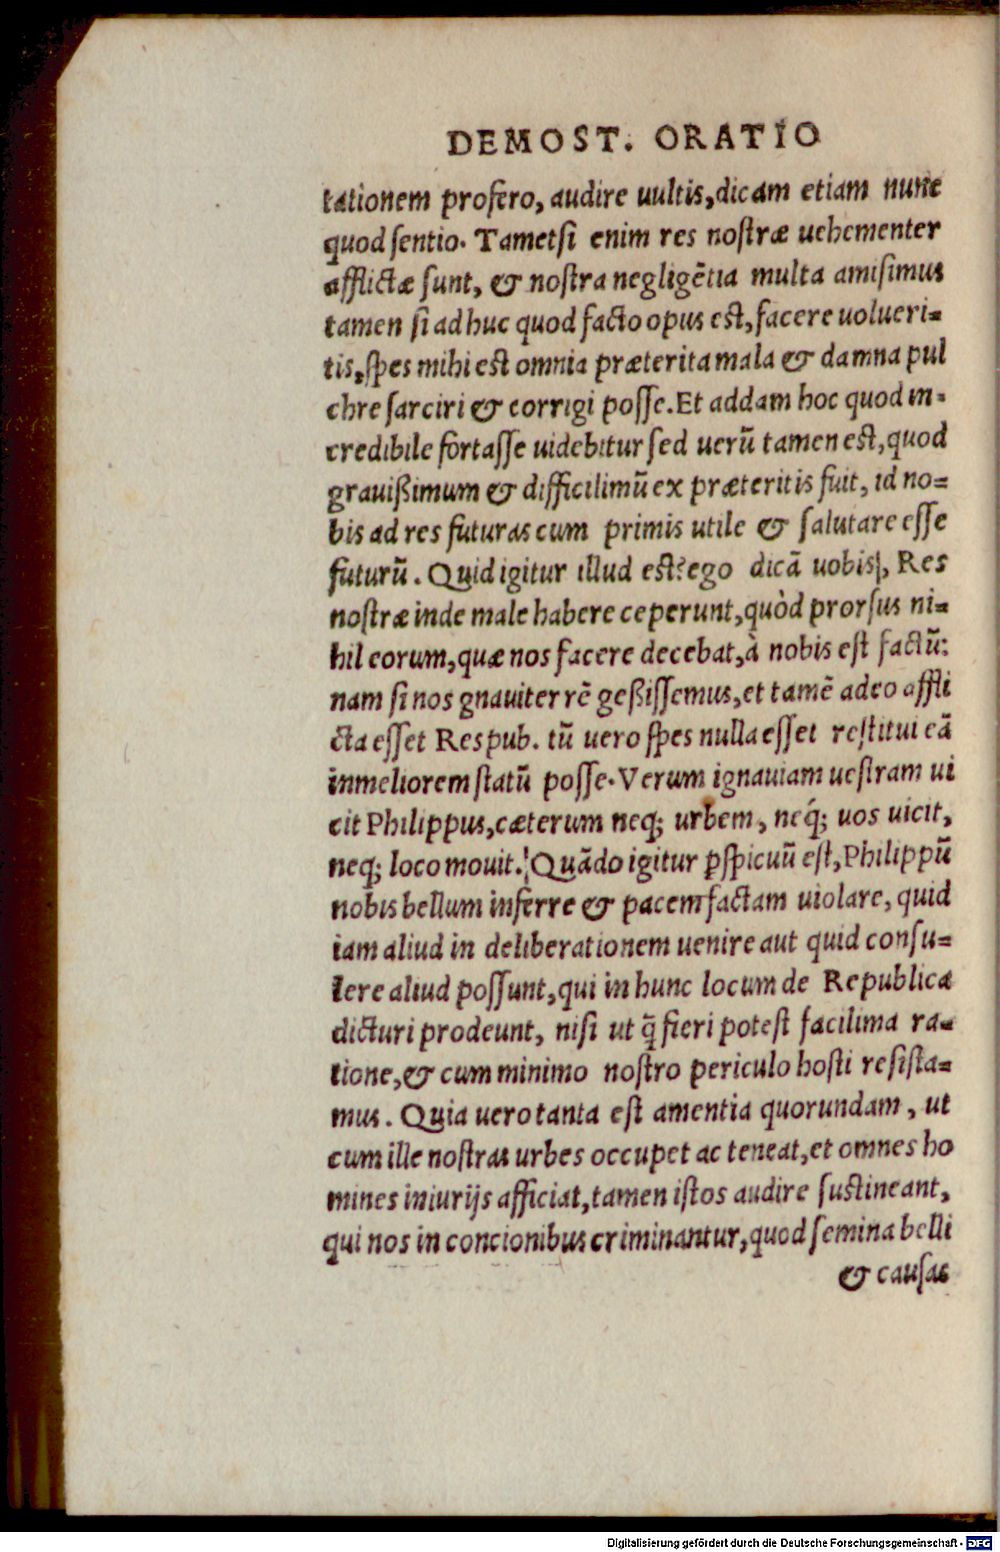 DEMOST. ORATIO
tationem profero, audire uultis, dicam etiam nunc
quod ſentio. Tametſi enim res noſtræ uehementer
afflictæ ſunt, & noſtra negligẽtia multa amiſimus
tamen ſi ad huc quod facto opus eſt, facere uolueri-
tis, ſpes mihi eſt omnia præterita mala & damna pul
chre ſarciri & corrigi poſſe. Et addam hoc quod in-
credibile fortaſſe uidebitur ſed uerũ tamen eſt, quod
grauißimum & difficilimũ ex præteritis fuit, id no-
bis ad res futuras cum primis utile & ſalutare eſſe
futurũ. Quid igitur illud est? ego dicã uobis, Res
noſtræ inde male habere ceperunt, quòd prorſus ni-
hil eorum, quæ nos facere decebat, à nobis eſt factũ:
nam ſi nos gnauiter rẽ geßiſſemus, et tamẽ adeo affli
cta eſſet Respub. tũ uero ſpes nulla eſſet reſtitui eã
in meliorem ſtatũ poſſe. Verum ignauiam ueſtram ui
cit Philippus, cæterum neq; urbem, neq́; uos uicit,
neq; loco mouit. Quãdo igitur p̱ſpicuũ eſt, Philippũ
nobis bellum inferre & pacem factam uiolare, quid
iam aliud in deliberationem uenire aut quid conſu-
lere aliud poſſunt, qui in hunc locum de Republica
dicturi prodeunt, niſi ut q̃ fieri poteſt facilima ra-
tione, & cum minimo noſtro periculo hoſti reſiſta-
mus. Quia uero tanta eſt amentia quorundam, ut
cum ille noſtras urbes occupet ac teneat, et omnes ho
mines iniurijs afficiat, tamen iſtos audire ſuſtineant,
qui nos in concionibus criminantur, quod ſemina belli
& cauſas
Digitalisierung gefördert durch die Deutsche Forschungsgemeinschaft - DFG